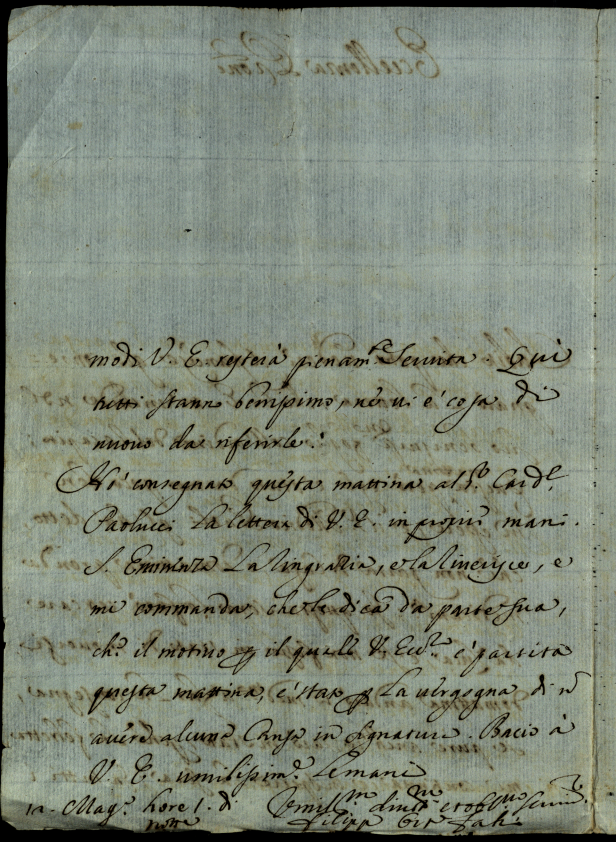 modi V. E. resterà pienam.te Servita. Quì
tutti stanno benissimo, nè vi è cosa di
nuovo da riferirle.
Hò consegnato questa mattina al S.r Card.l
Paolucci la lettera di V. E. in proprie mani.
S. Eminenza La ringrazia, e la riverisce, e
mi commanda, che le dica da parte sua,
che il motivo p il quale V. Ecc.za è partita
questa mattina, è stato p La vergogna di n
avere alcuna Causa in Signatura. Bacio à
V. E. umilissim.e Le mani
Mag.o hore 1. di
notte
Umill.mo divot.mo et obl.mo Servit.e
Filippo